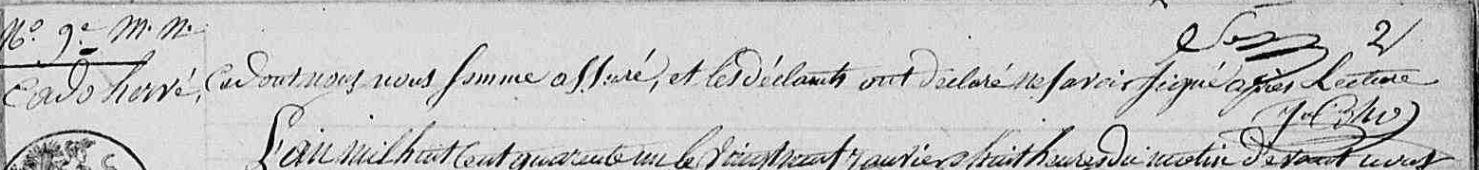 N.º 9.e M. N. 2
Cado hervé, Ce dont nous nous somme assuré, et les déclarants ont déclaré ne savoir signé après Lecture
L'an mil huit Cent quarante un le vingt neuf janvier à huit heures du matin devant nous